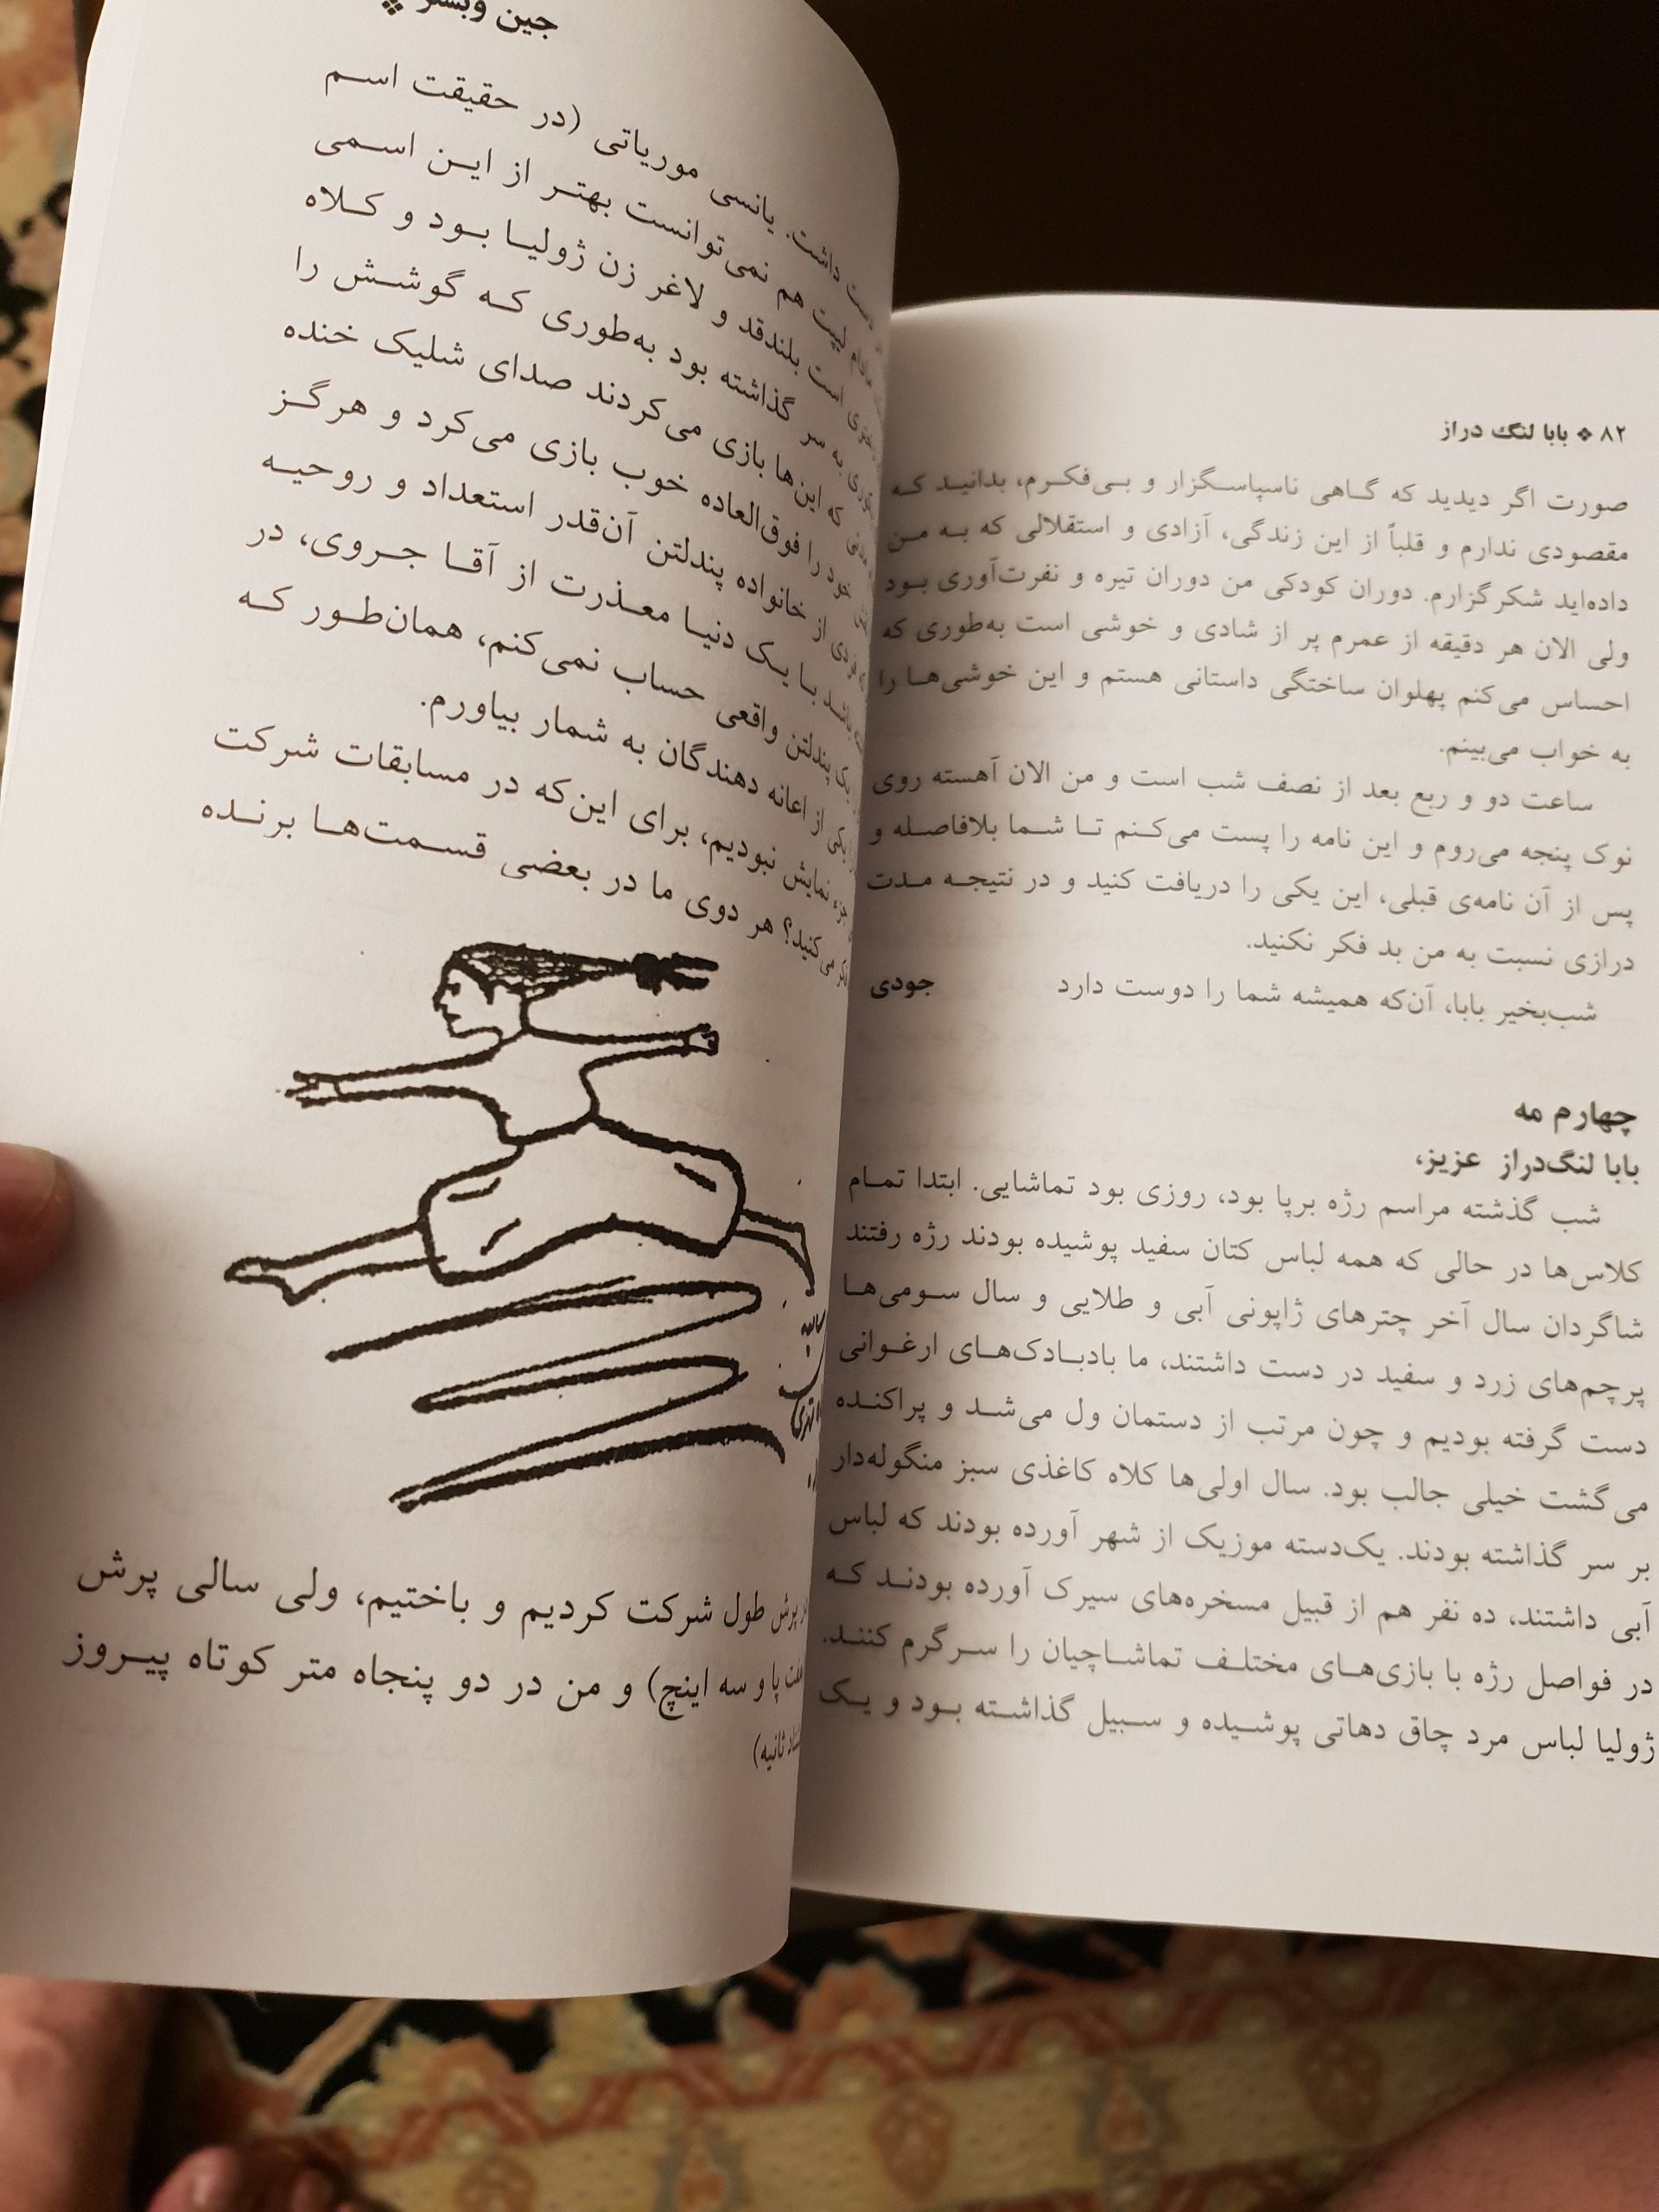 ۸۲ ❖ بابا لنگ دراز
صورت اگر دیدید که گاهی ناسپاسگزار و بی‌فکرم، بدانید که
مقصودی ندارم و قلباً از این زندگی، آزادی و استقلالی که به من
داده‌اید شکرگزارم. دوران کودکی من دوران تیره و نفرت‌آوری بود
ولی الان هر دقیقه از عمرم پر از شادی و خوشی است به‌طوری که
احساس می‌کنم پهلوان ساختگی داستانی هستم و این خوشی‌ها را
به خواب می‌بینم.
ساعت دو و ربع بعد از نصف شب است و من الان آهسته روی
نوک پنجه می‌روم و این نامه را پست می‌کنم تا شما بلافاصله و
پس از آن نامه‌ی قبلی، این یکی را دریافت کنید و در نتیجه مدت
درازی نسبت به من بد فکر نکنید.
شب‌بخیر بابا، آن‌که همیشه شما را دوست دارد جودی
چهارم مه
بابا لنگ‌دراز عزیز،
شب گذشته مراسم رژه برپا بود، روزی بود تماشایی. ابتدا تمام
کلاس‌ها در حالی که همه لباس کتان سفید پوشیده بودند رژه رفتند
شاگردان سال آخر چترهای ژاپونی آبی و طلایی و سال سومی‌ها
پرچم‌های زرد و سفید در دست داشتند، ما بادبادک‌های ارغوانی
دست گرفته بودیم و چون مرتب از دستمان ول می‌شد و پراکنده
می‌گشت خیلی جالب بود. سال اولی‌ها کلاه کاغذی سبز منگوله‌دار
بر سر گذاشته بودند. یک‌دسته موزیک از شهر آورده بودند که لباس
آبی داشتند، ده نفر هم از قبیل مسخره‌های سیرک آورده بودند که
در فواصل رژه با بازی‌های مختلف تماشاچیان را سرگرم کنند.
ژولیا لباس مرد چاق دهاتی پوشیده و سبیل گذاشته بود و یک
جین وبستر ❖
داشت. یانسی موریاتی (در حقیقت اسم
لیپت هم نمی‌توانست بهتر از این اسمی
است بلندقد و لاغر زن ژولیا بود و کلاه
به سر گذاشته بود به‌طوری که گوشش را
که این‌ها بازی می‌کردند صدای شلیک خنده
خود را فوق‌العاده خوب بازی می‌کرد و هرگز
از خانواده پندلتن آن‌قدر استعداد و روحیه
باشد با یک دنیا معذرت از آقا جروی، در
یک پندلتن واقعی حساب نمی‌کنم، همان‌طور که
یکی از اعانه دهندگان به شمار بیاورم.
جزء نمایش نبودیم، برای این‌که در مسابقات شرکت
می‌کنید؟ هر دوی ما در بعضی قسمت‌ها برنده
پرش طول شرکت کردیم و باختیم، ولی سالی پرش
پا و سه اینچ) و من در دو پنجاه متر کوتاه پیروز
ثانیه)